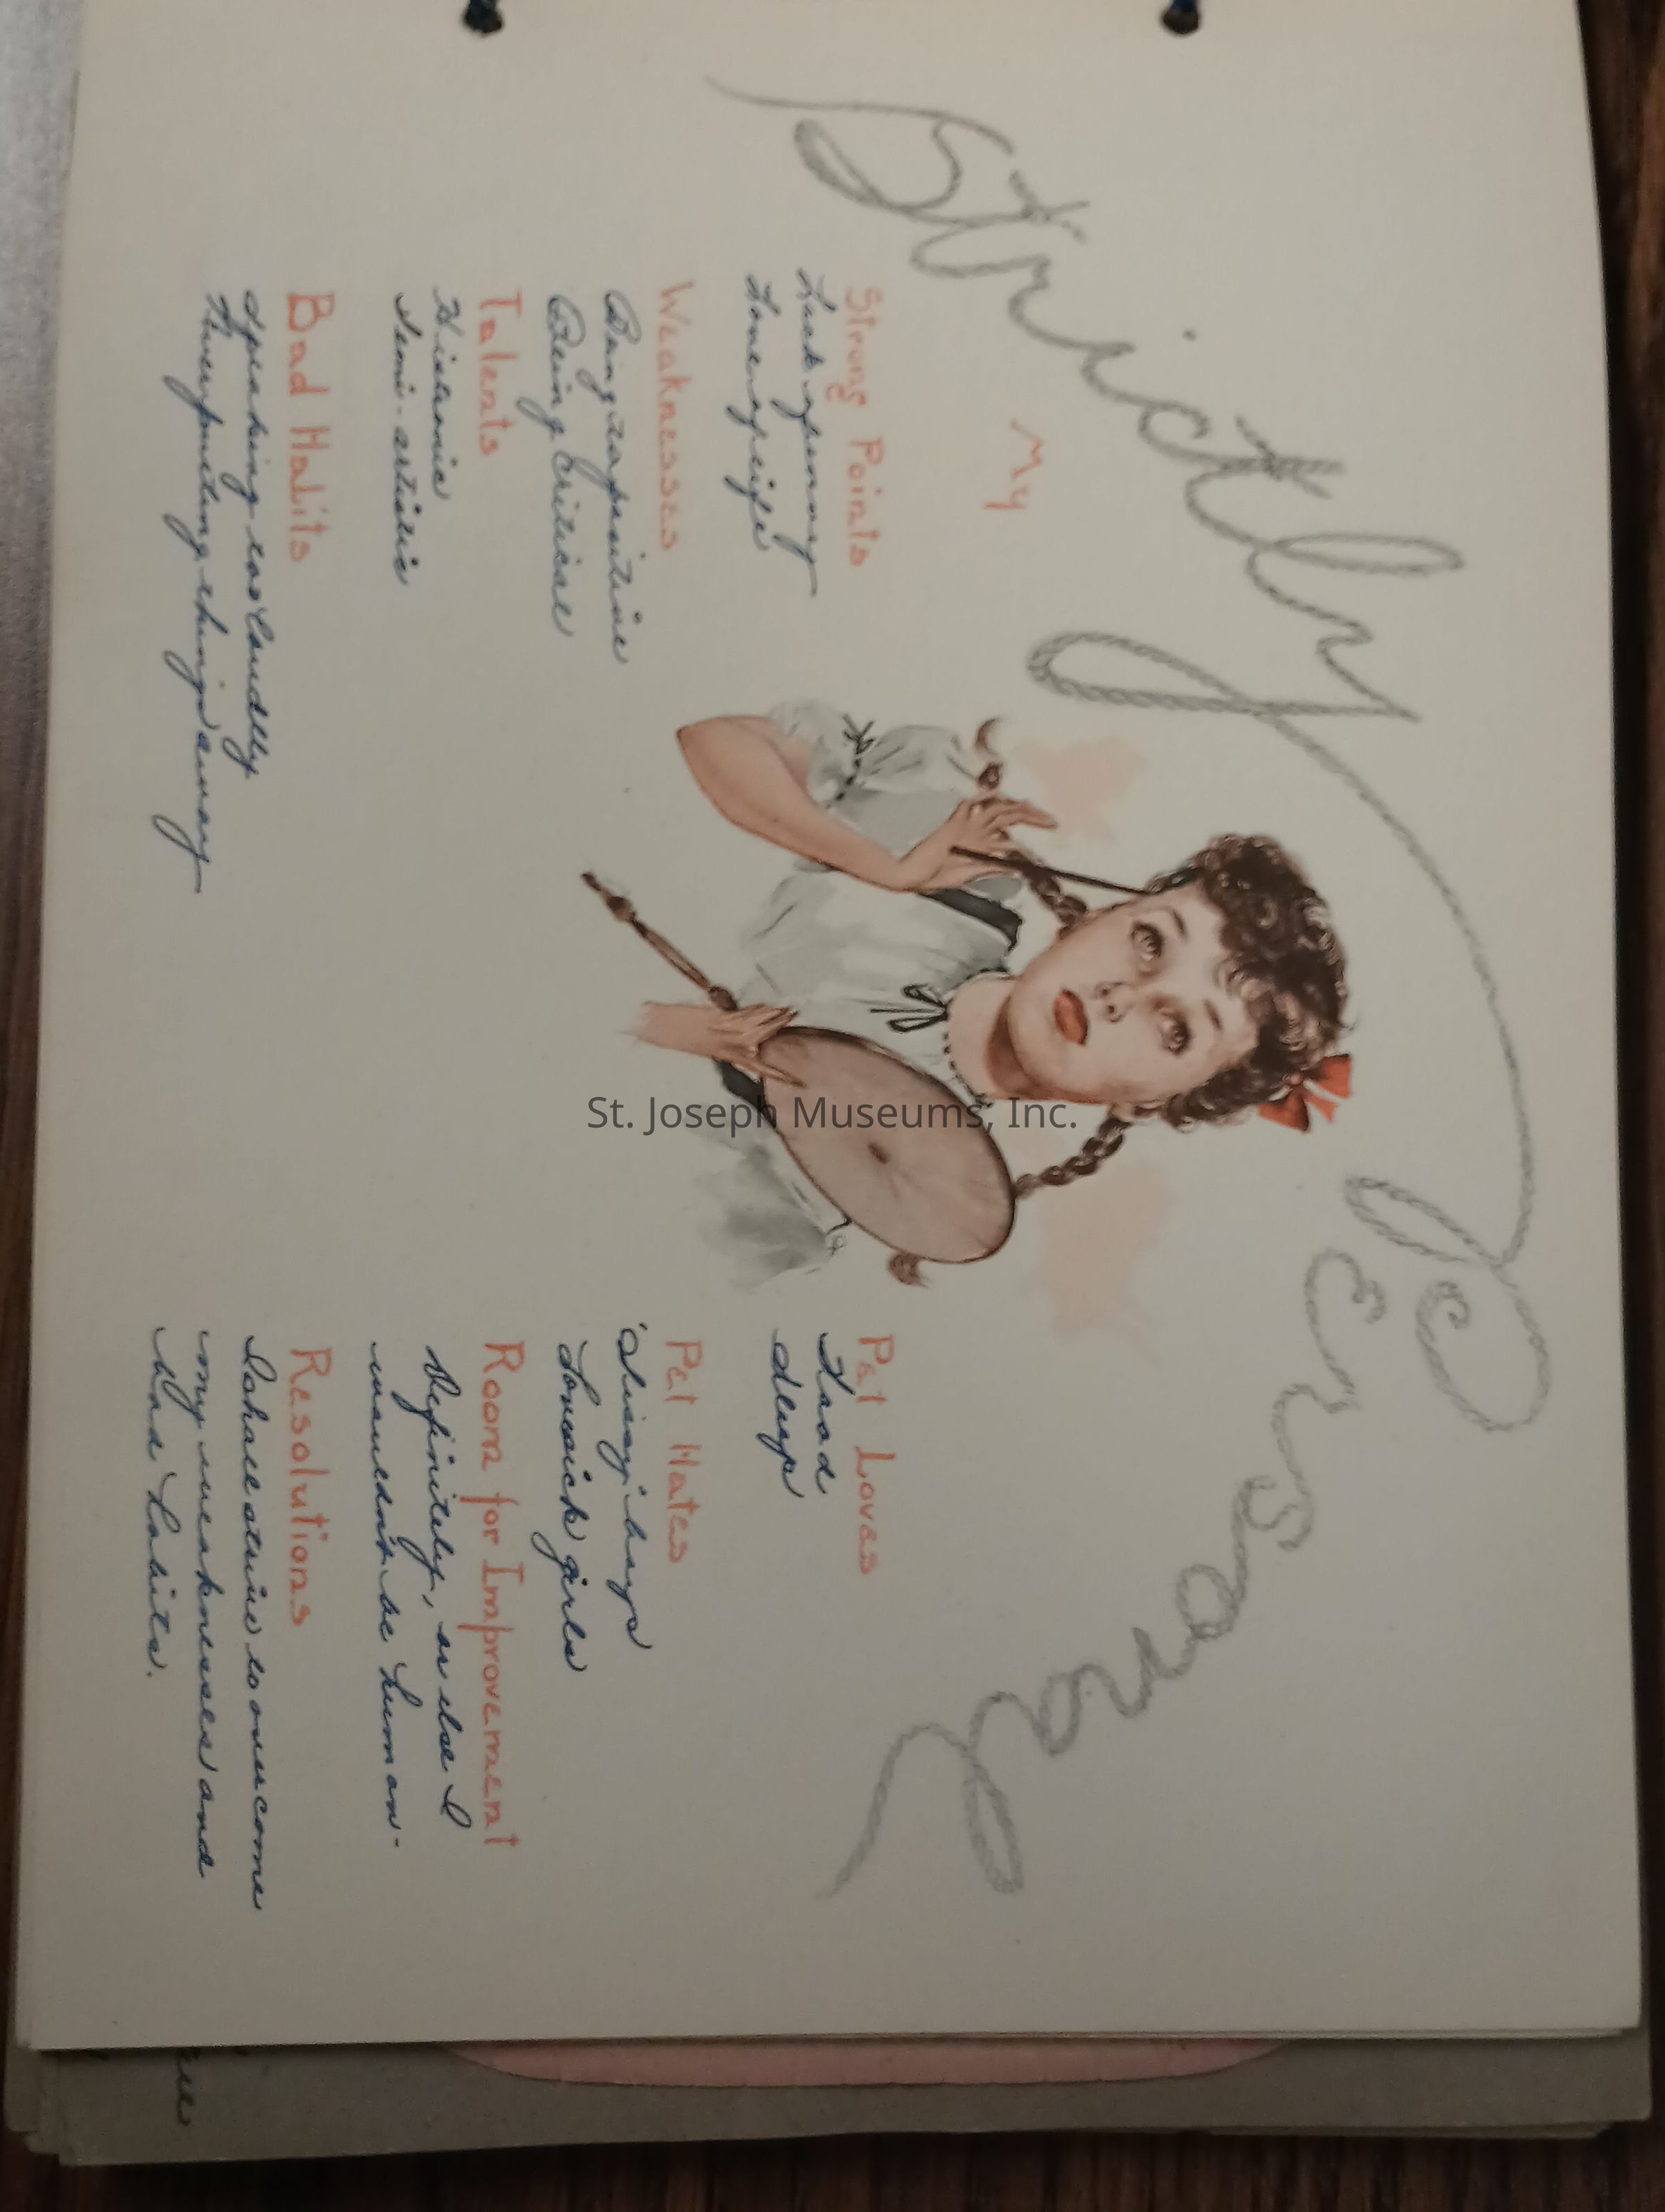 Strictly Personal
My
Strong Points
Lack of money
Love of life
Weaknesses
Being too positive
Being Critical
Talents
Histrionic
Semi-artistic
Bad Habits
Speaking too loudly
Never putting things away
Pet Loves
Food
Sleep
Pet Hates
'Sissy' boys
Lovesick girls
Room for Improvement
Definitely, or else I
wouldn't be human.
Resolutions
I shall strive to overcome
my weaknesses and
bad habits.
St. Joseph Museums, Inc.